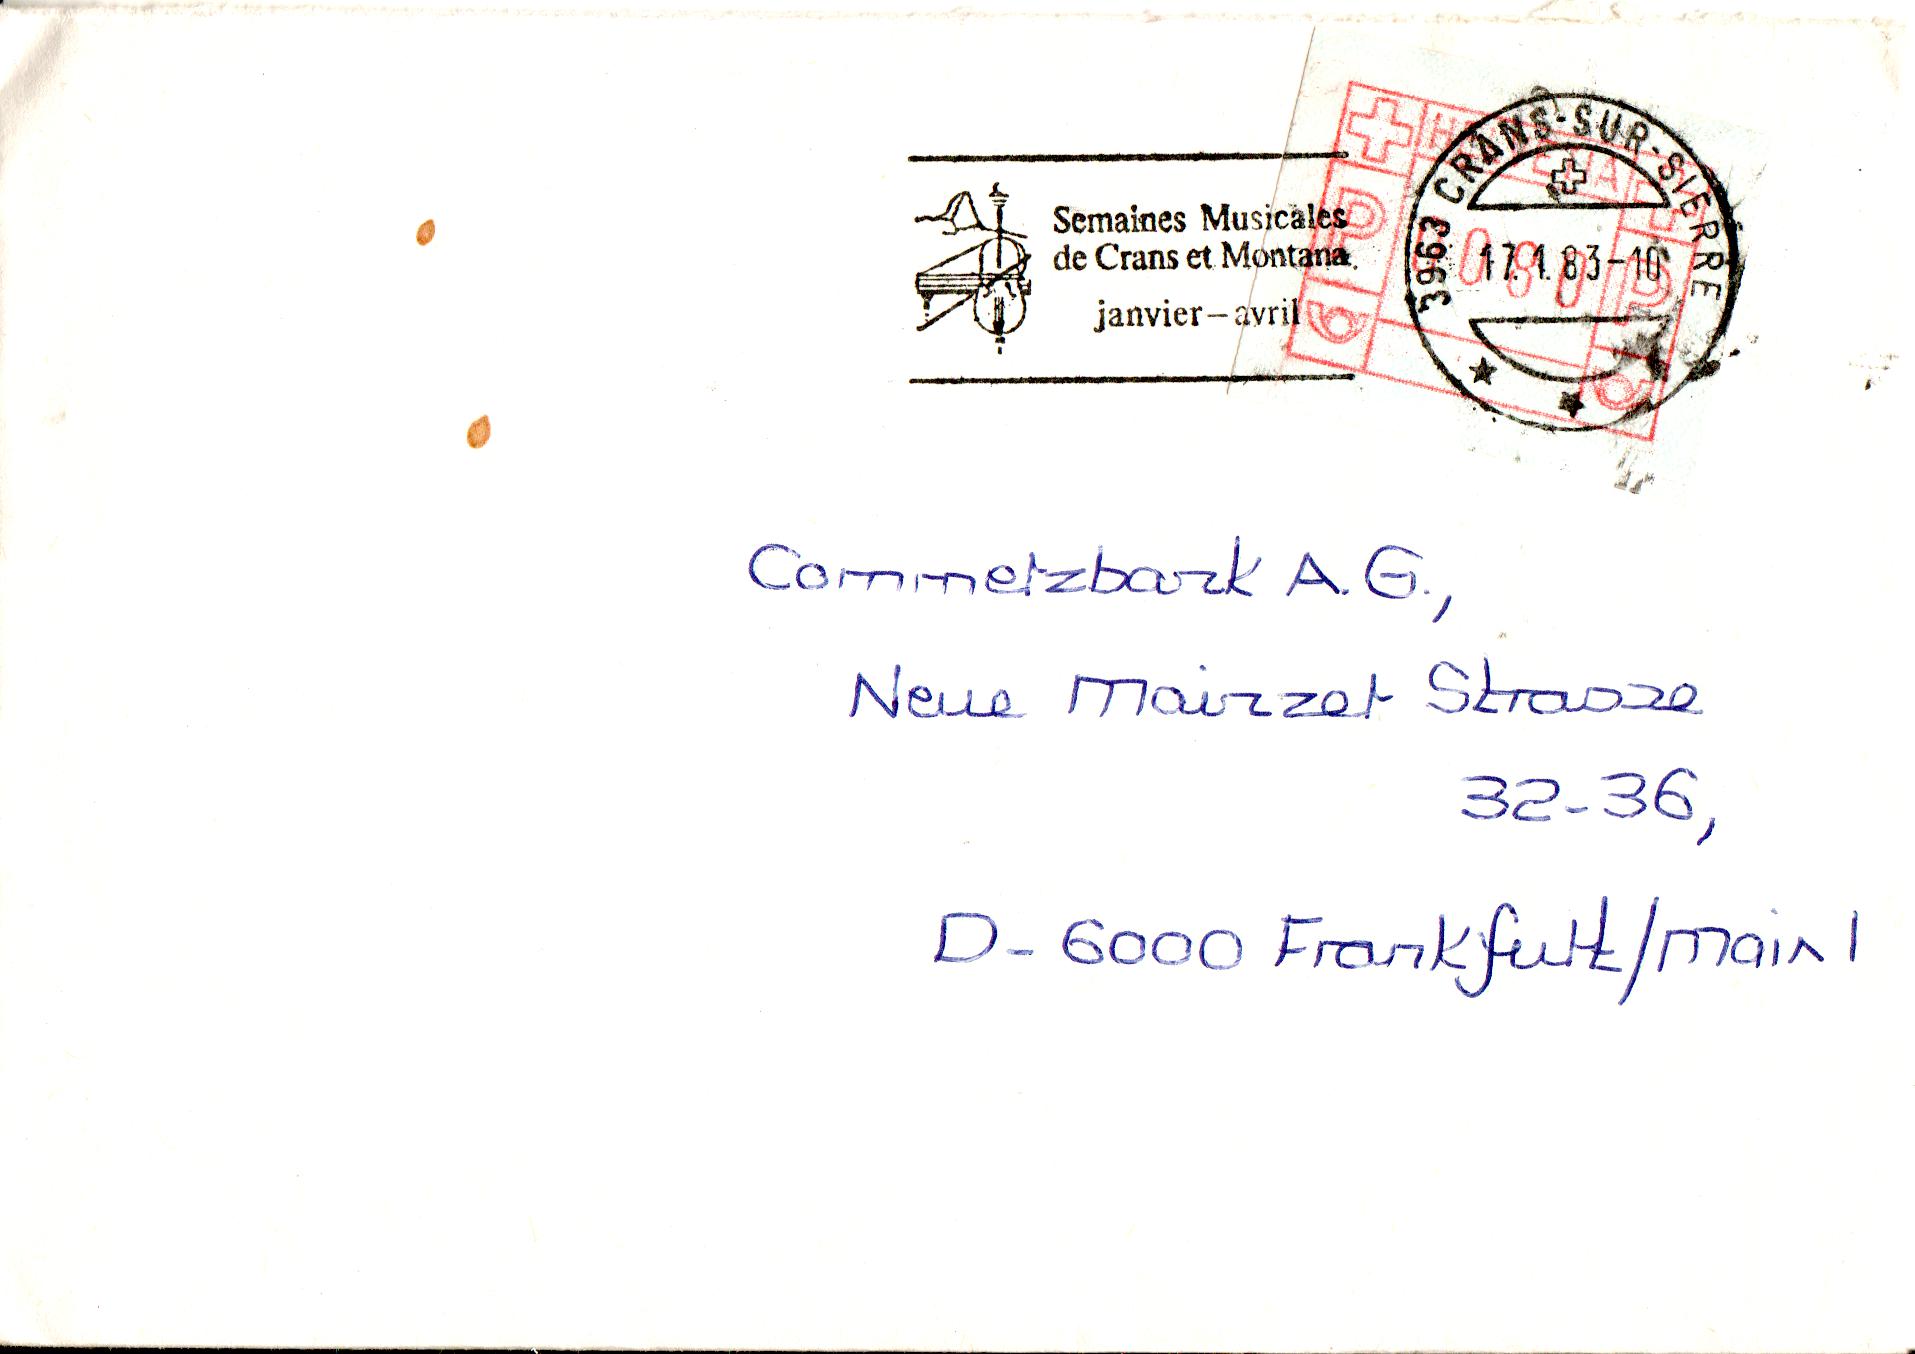 Semaines Musicales
de Crans et Montana
janvier – avril
HELVETIA
P 0080 P
3963 CRANS-SUR-SIERRE
17.1.83-10
Commerzbank A.G.,
Neue Mainzer Strasse
32-36,
D-6000 Frankfurt/Main 1